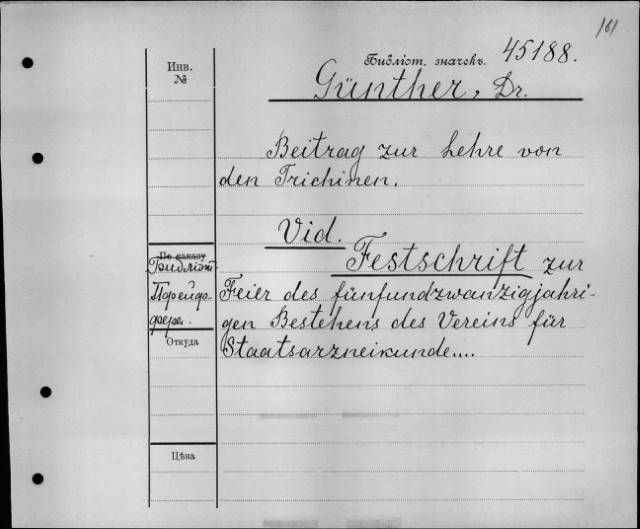 161
Инв.
№
Библіот. значекъ. 45188.
Günther, Dr.
Beitrag zur Lehre von
den Trichinen.
Vid.
По заказу
Библіот.
Festschrift zur
Feier des fünfundzwanzigjahri-
gen Bestehens des Vereins für
Staatsarzneikunde....
Откуда
Цѣна